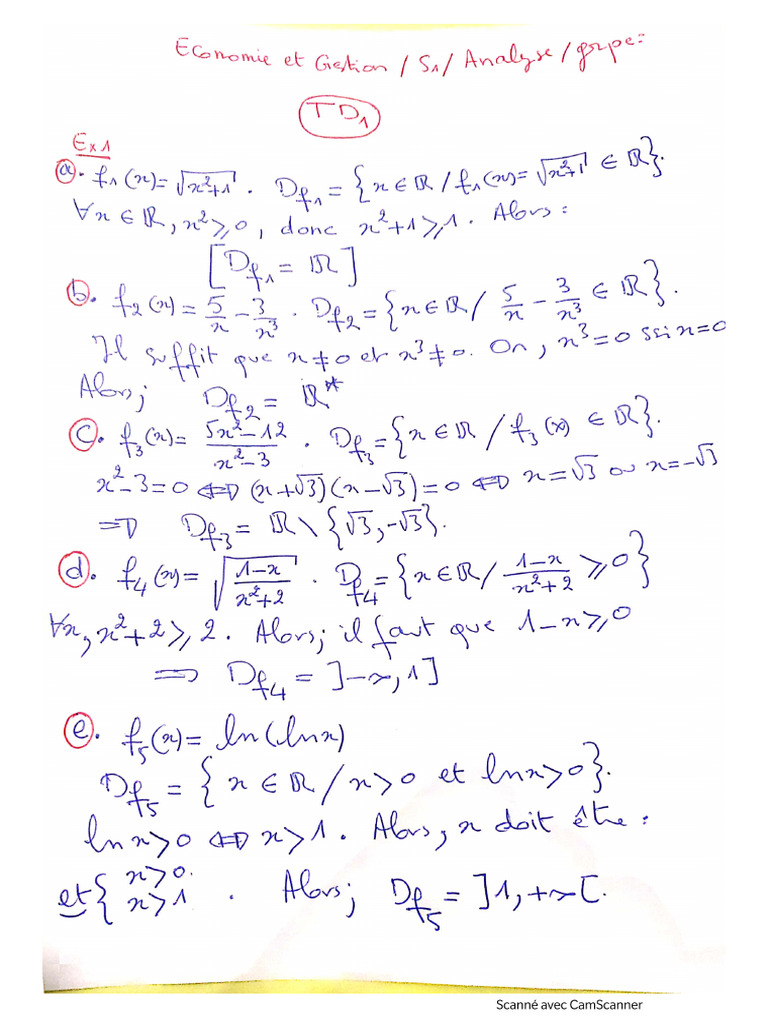 Economie et Gestion / S1 / Analyse / grpe:
TD1
Ex1
a. f₁(x) = √(x²+1) . Df₁ = {x ∈ ℝ / f₁(x) = √(x²+1) ∈ ℝ}.
∀x ∈ ℝ, x² ⩾ 0, donc x²+1 ⩾ 1. Alors :
[Df₁ = ℝ]
b. f₂(x) = 5/x - 3/x³ . Df₂ = {x ∈ ℝ / 5/x - 3/x³ ∈ ℝ}.
Il suffit que x ≠ 0 et x³ ≠ 0. On, x³ = 0 ssi x = 0
Alors; Df₂ = ℝ*
c. f₃(x) = (5x²-12)/(x²-3) . Df₃ = {x ∈ ℝ / f₃(x) ∈ ℝ}.
x²-3 = 0 ⇔ (x+√3)(x-√3) = 0 ⇔ x = √3 ou x = -√3
⇒ Df₃ = ℝ \ {√3, -√3}.
d. f₄(x) = √((1-x)/(x²+2)) . Df₄ = {x ∈ ℝ / (1-x)/(x²+2) ⩾ 0}
∀x, x²+2 ⩾ 2. Alors; il faut que 1-x ⩾ 0
⇒ Df₄ = ]-∞, 1]
e. f₅(x) = ln(lnx)
Df₅ = {x ∈ ℝ / x > 0 et lnx > 0}.
lnx > 0 ⇔ x > 1. Alors, x doit être :
et { x > 0.
x > 1 . Alors; Df₅ = ]1, +∞[.
Scanné avec CamScanner